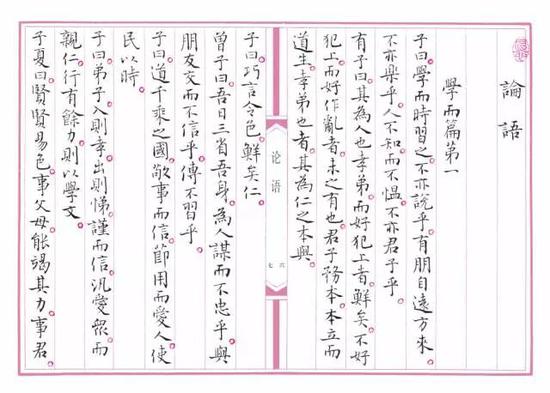 論語
學而篇第一
子曰。學而時習之。不亦說乎。有朋自遠方來。
不亦樂乎。人不知而不慍。不亦君子乎。
有子曰。其為人也孝弟。而好犯上者。鮮矣。不好
犯上。而好作亂者。未之有也。君子務本。本立而
道生。孝弟也者。其為仁之本與。
论语
七 六
子曰。巧言令色。鮮矣仁。
曾子曰。吾日三省吾身。為人謀而不忠乎。與
朋友交而不信乎。傳不習乎。
子曰。道千乘之國。敬事而信。節用而愛人。使
民以時。
子曰。弟子入則孝。出則悌。謹而信。汎愛眾。而
親仁。行有餘力。則以學文。
子夏曰。賢賢易色。事父母。能竭其力。事君。